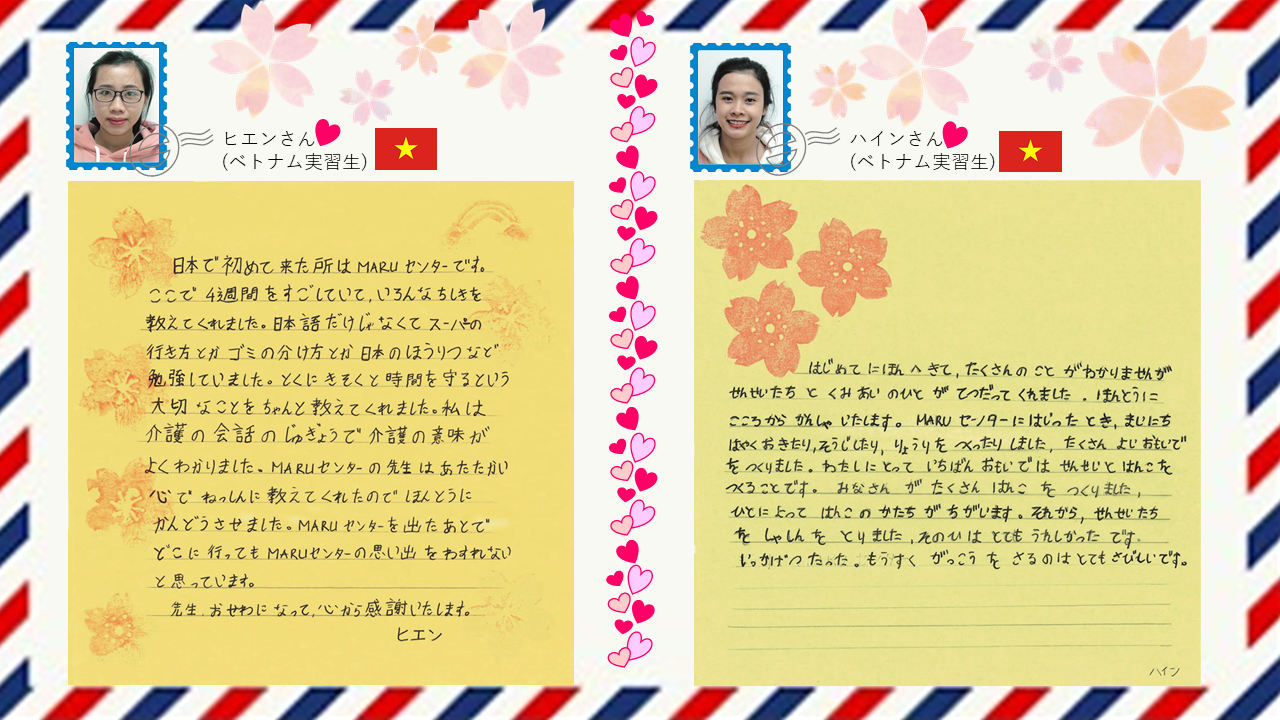 ヒエンさん
(ベトナム実習生)
日本で初めて来た所はMARUセンターです。
ここで4週間をすごしていて、いろんなちしきを
教えてくれました。日本語だけじゃなくてスーパの
行き方とかゴミの分け方とか日本のほうりつなど
勉強していました。とくにきそくと時間を守るという
大切なことをちゃんと教えてくれました。私は
介護の会話のじゅぎょうで介護の意味が
よくわかりました。MARUセンターの先生はあたたかい
心でねっしんに教えてくれたのでほんとうに
かんどうさせました。MARUセンターを出たあとで
どこに行ってもMARUセンターの思い出をわすれない
と思っています。
先生、おせわになって、心から感謝いたします。
ヒエン
ハインさん
(ベトナム実習生)
はじめてにほんへきて、たくさんのことがわかりませんが
せんせいたちとくみあいのひとがてつだってくれました。ほんとうに
こころからかんしゃいたします。MARUセンターにはじったとき、まいにち
はやくおきたり、そうじしたり、りょうりをつくったりしました、たくさんよいおもいで
をつくりました。わたしにとっていちばんおもいではせんせいとはんこを
つくることです。みなさんがたくさんはんこをつくりました,
ひとによってはんこのかたちがちがいます。それから、せんせいたち
をしゃしんをとりました,そのひはとてもうれしかったです。
いっかげつたった。もうすぐがっこうをさるのはとてもさびしいです。
ハイン